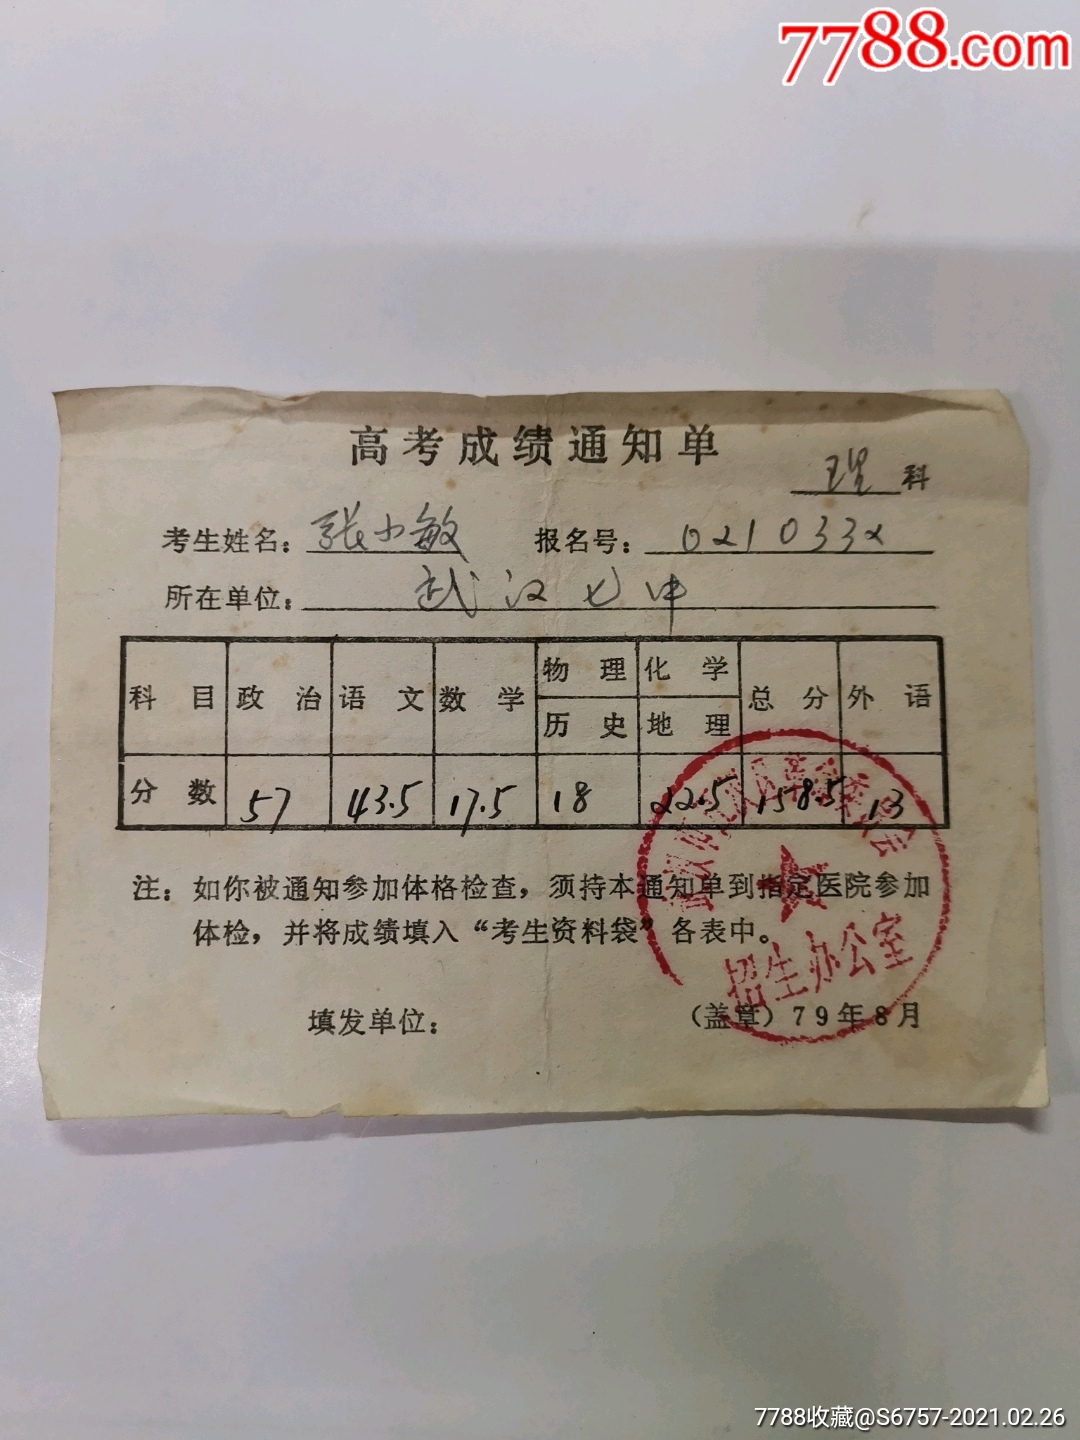 7788.com
高考成绩通知单
理科
考生姓名：张小敏 报名号：0210332
所在单位：武汉七中
科目 政治 语文 数学 物理 化学 总分 外语
历史 地理
分数 57 43.5 17.5 18 22.5 158.5 13
注：如你被通知参加体格检查，须持本通知单到指定医院参加
体检，并将成绩填入“考生资料袋”各表中。
招生办公室
填发单位： （盖章）79年8月
7788收藏@S6757-2021.02.26